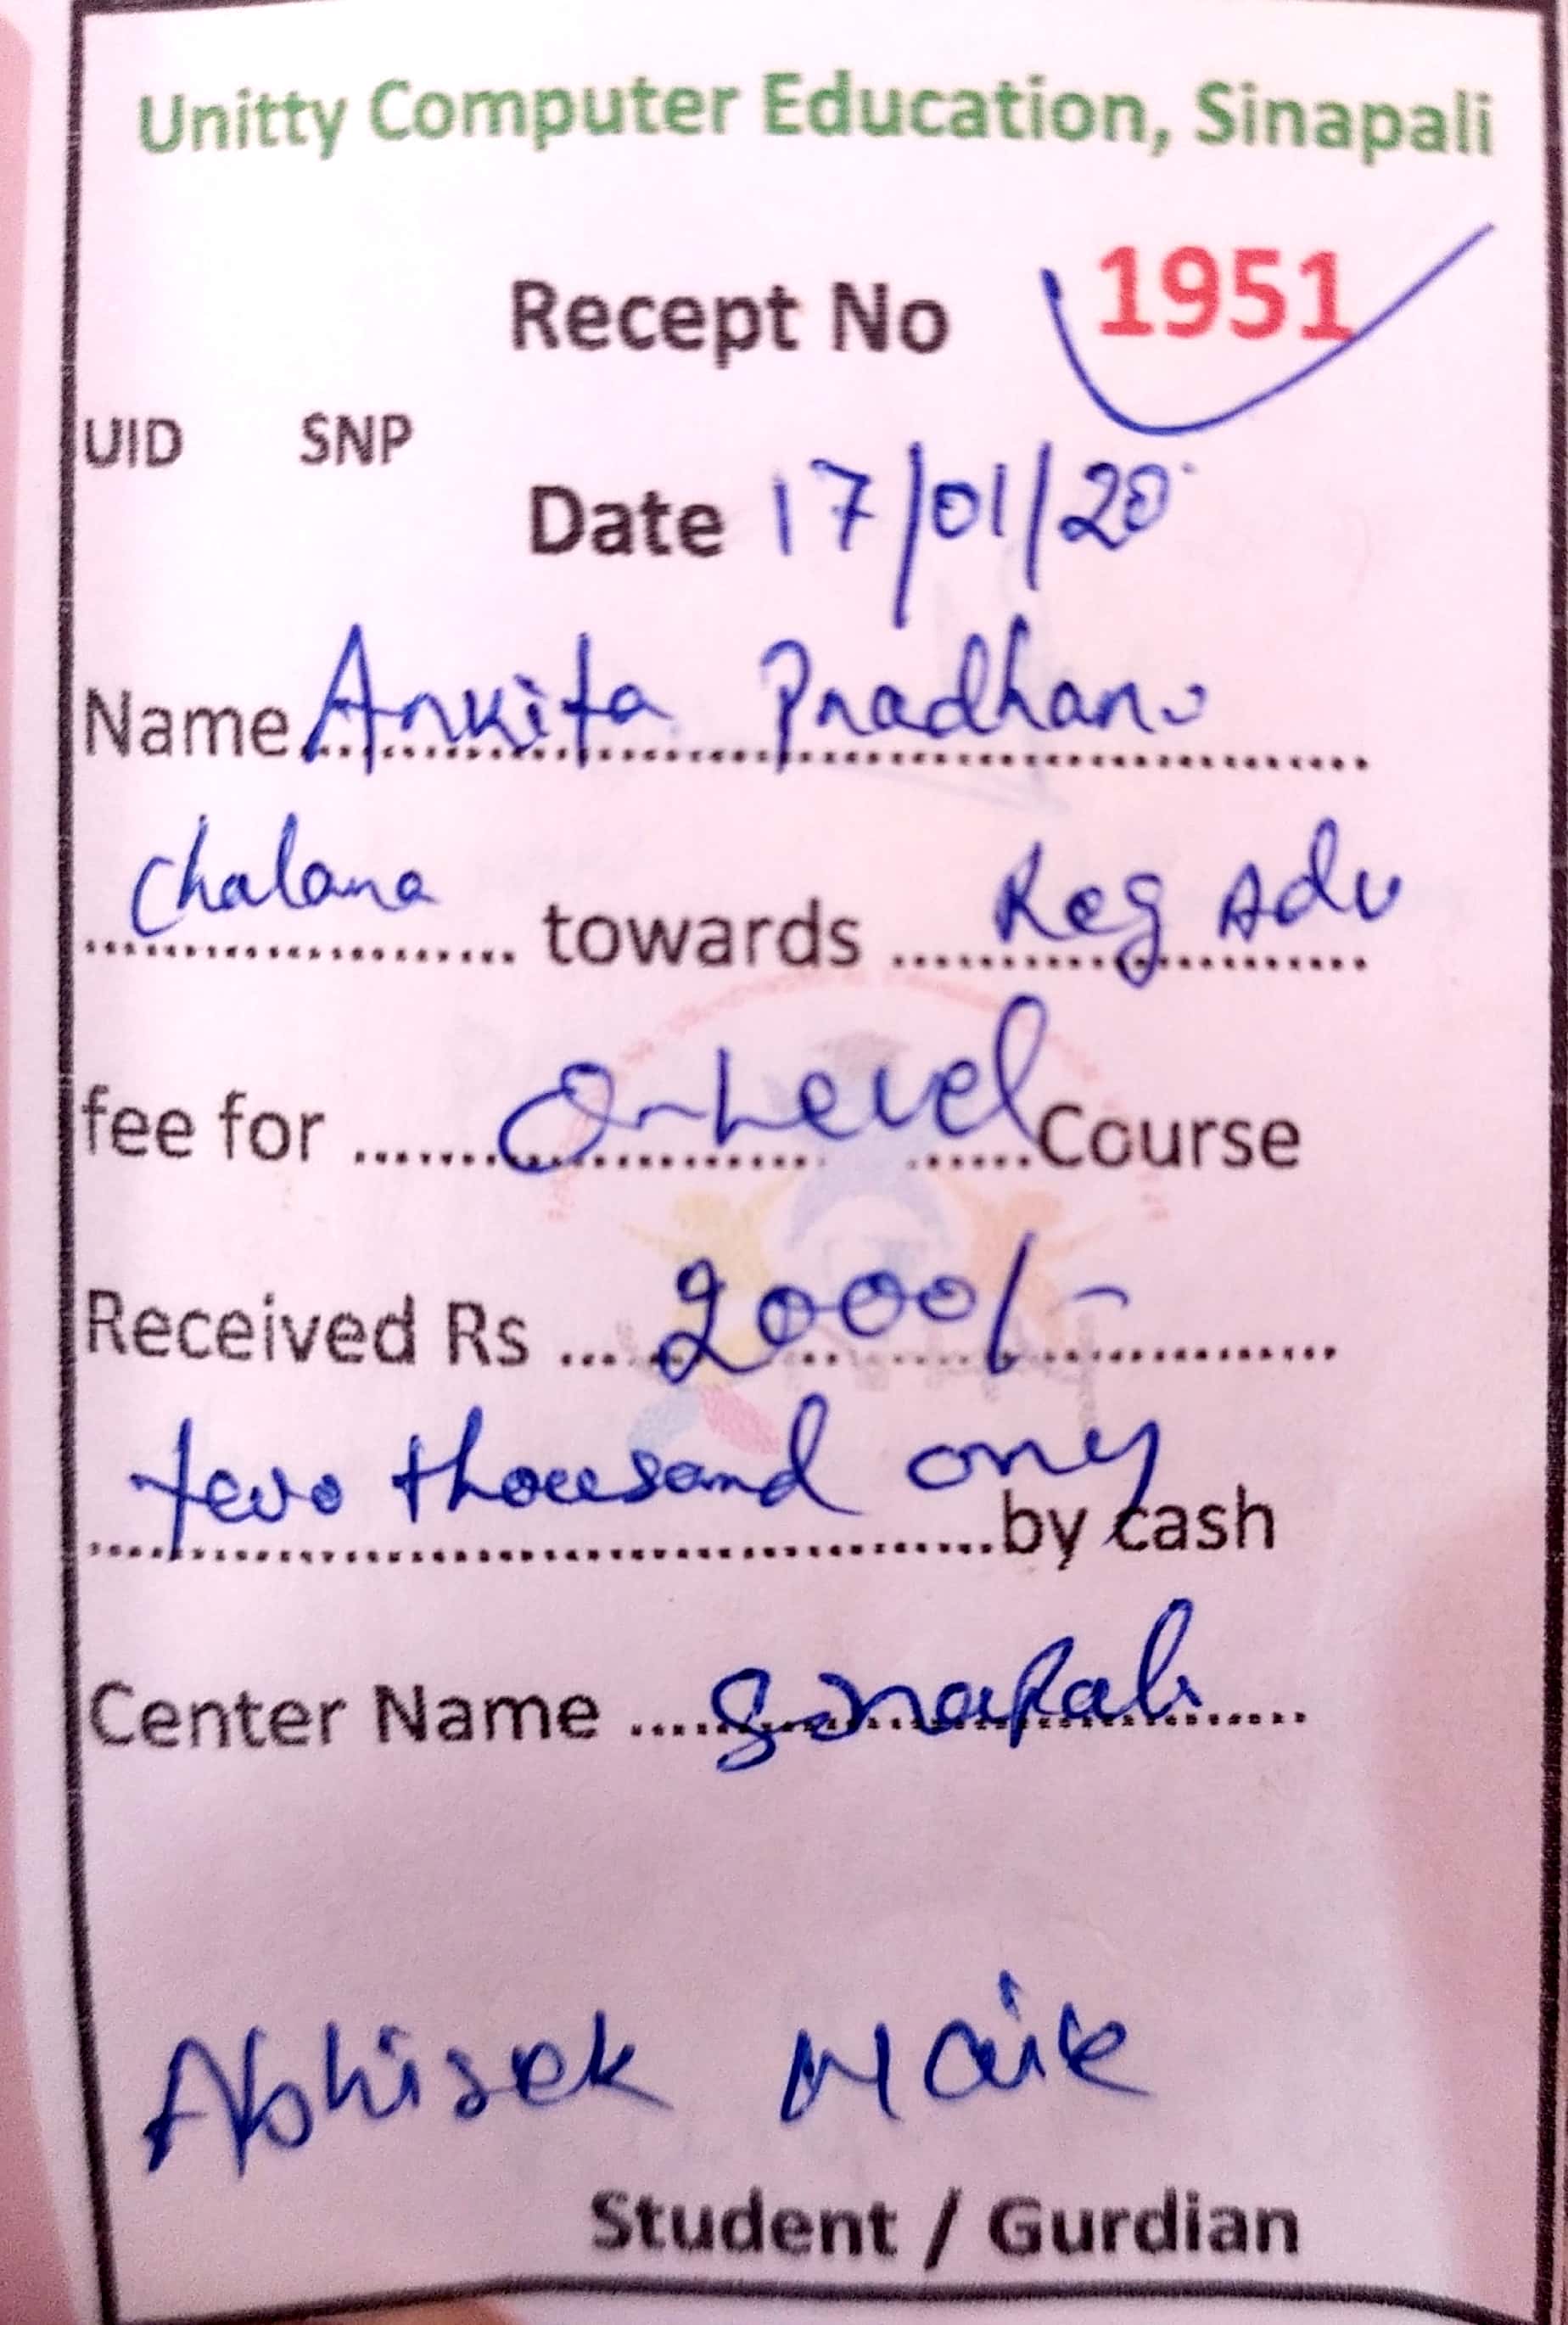 Unitty Computer Education, Sinapali
Recept No 1951
UID SNP
Date 17/01/20
Name Ankita Pradhan
Chalana towards Reg Adv
fee for O-Level Course
Received Rs 2000/-
two thousand only by cash
Center Name Sinapali
Abhisek Naik
Student / Gurdian